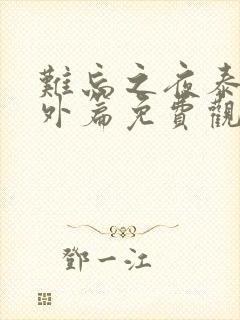 難忘之夜泰
外篇免費觀
鄧一江